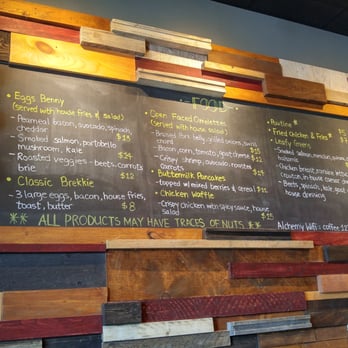 FOOD
• Eggs Benny
(served with house fries & salad)
- Peameal bacon, avocado, spinach,
cheddar $15
- Smoked salmon, portobello
mushroom, kale $24
- Roasted veggies - beets, carrots
brie $12
• Classic Brekkie
- 3 large eggs, bacon, house fries,
toast, butter $8
• Corn Faced Omelettes
(served with house salad)
- Braised Pork belly, grilled onions, swiss
chard
- Bacon, corn, tomato, goat cheese $12
- Crispy shrimp, avocado, roasted
carrots $15
• Buttermilk Pancakes
- topped w/ mixed berries & cereal $12
• Chicken Waffle
- Crispy chicken with spicy sauce, house
salad $15
• Poutine *
• Fried Chicken & Fries *
• Leafy Greens
- Smoked salmon,
kale
- Chicken breast, romaine
crouton, in house
- Beets, spinach, kale, goat
house dressing
** ALL PRODUCTS MAY HAVE TRACES OF NUTS **
Alchemy Wifi: coffee